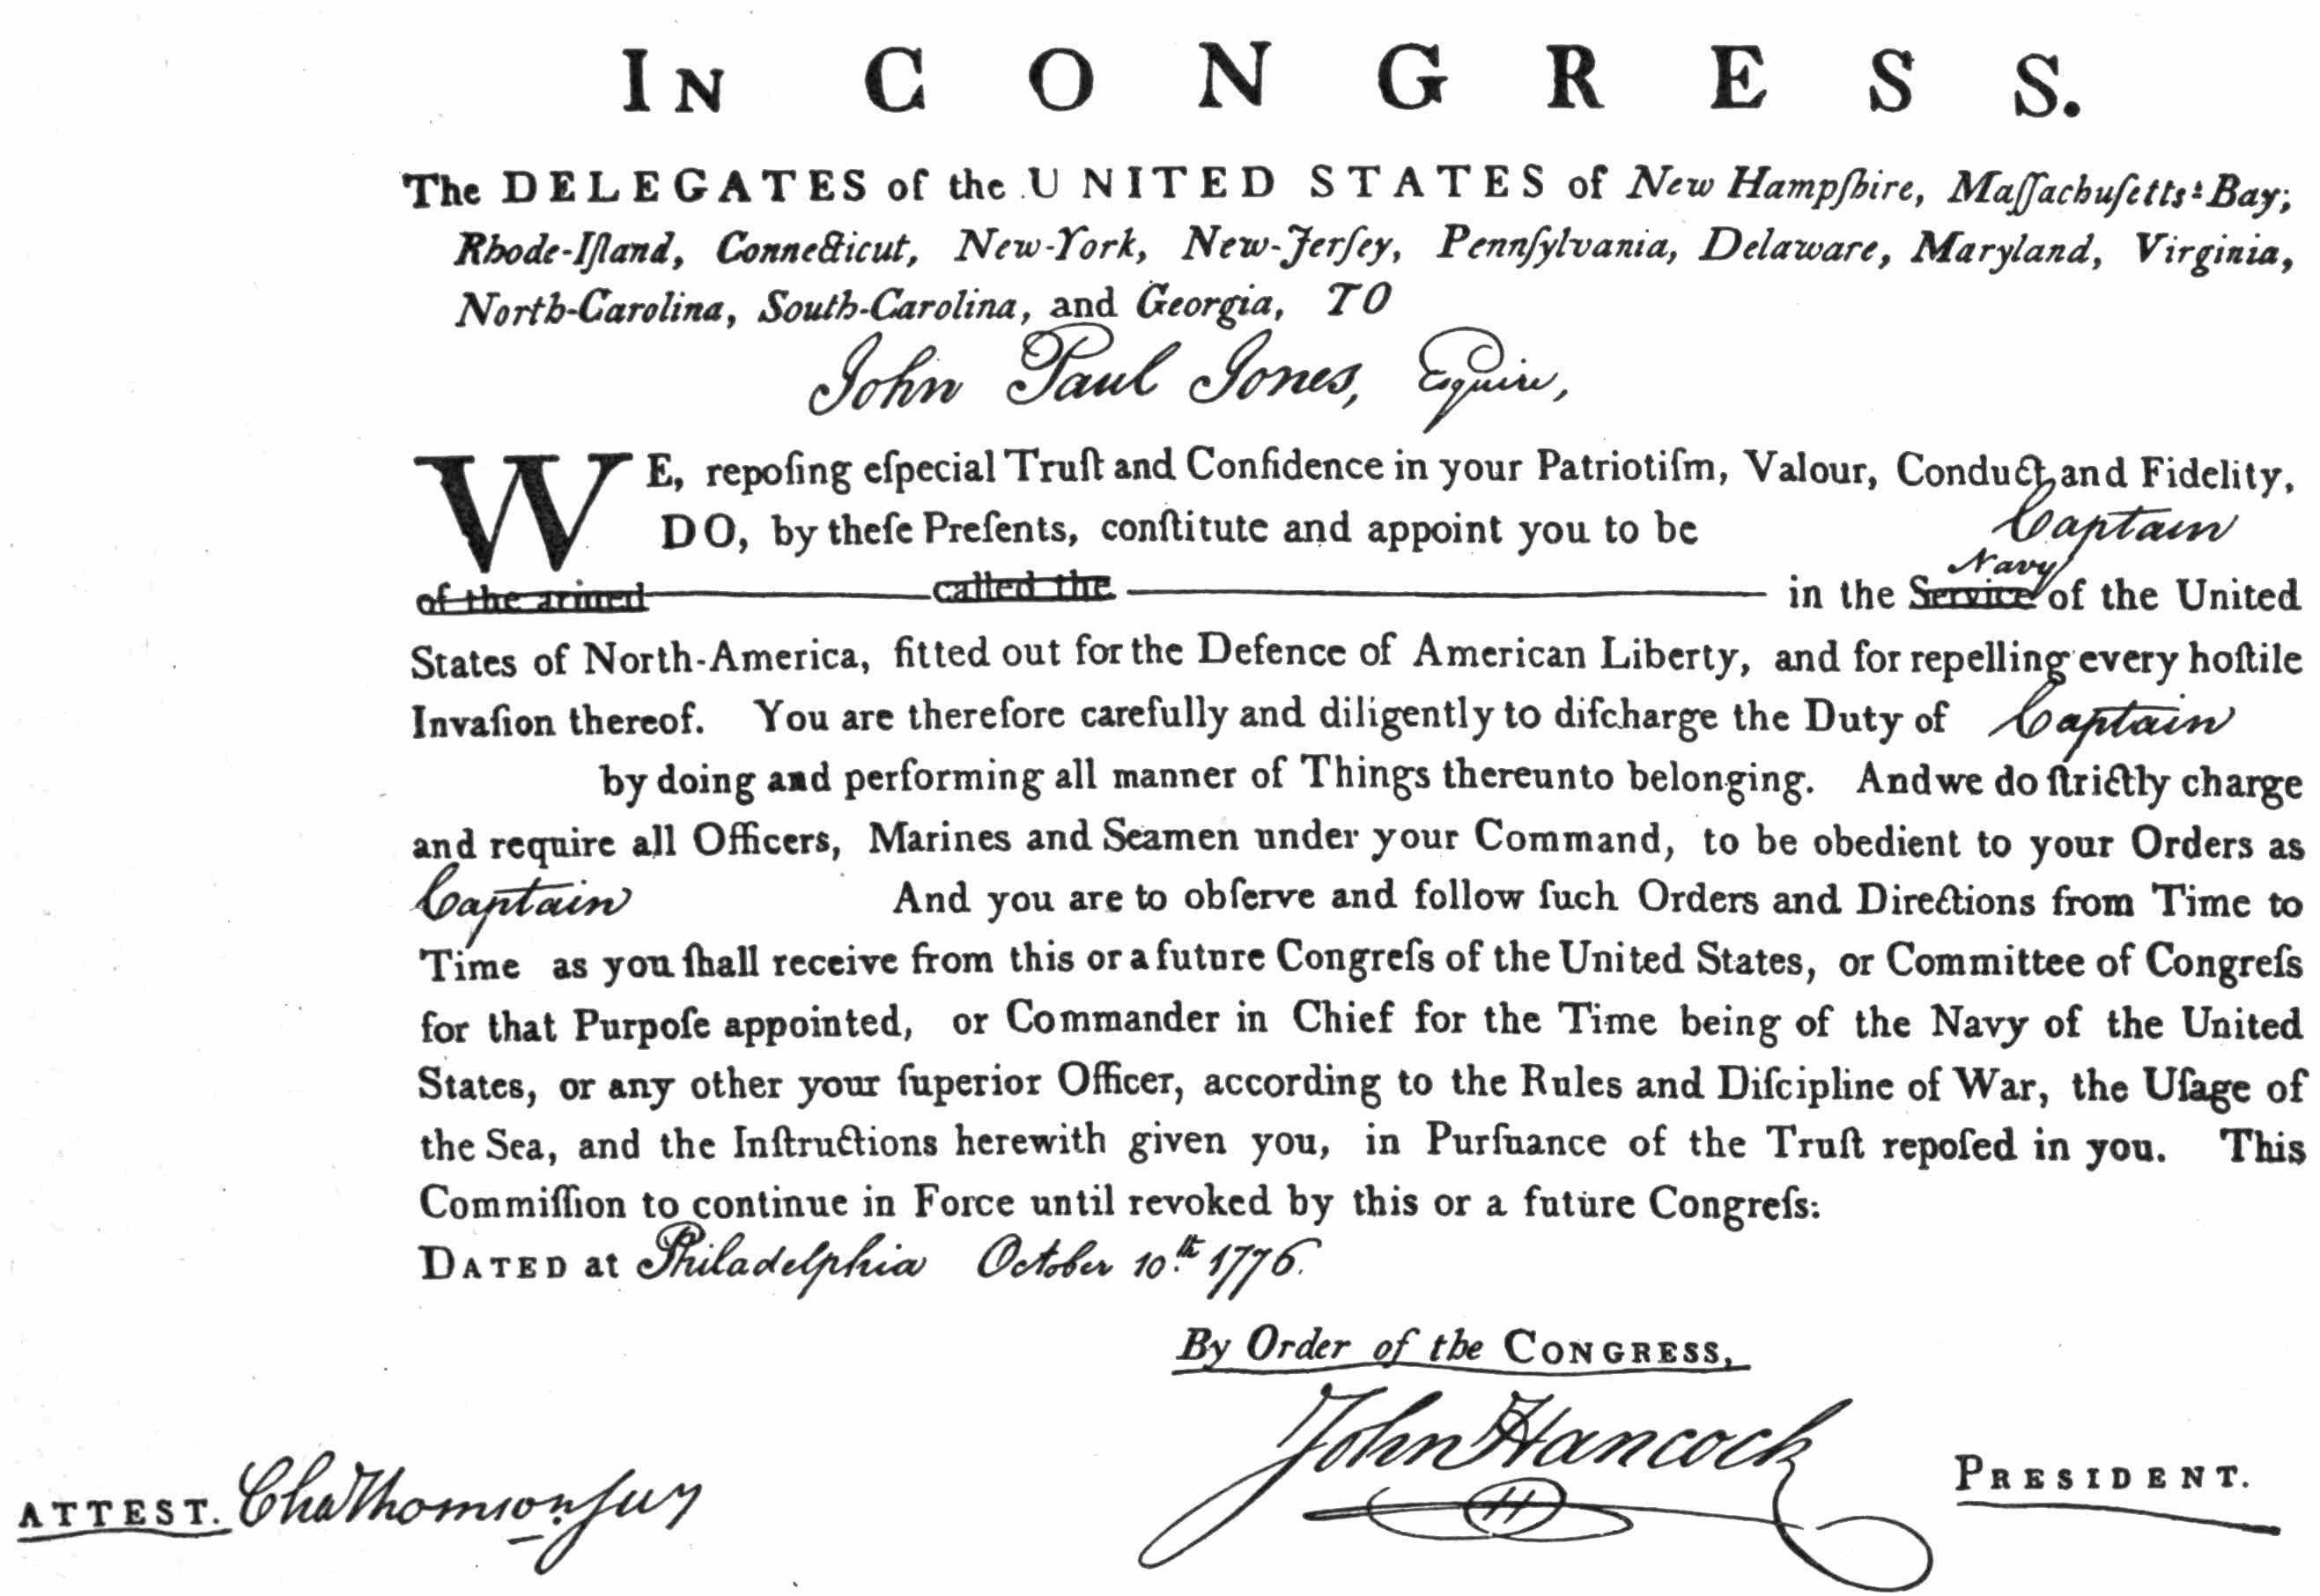 IN CONGRESS.
The DELEGATES of the UNITED STATES of New Hampſhire, Maſſachuſetts-Bay;
Rhode-Iſland, Connecticut, New-York, New-Jerſey, Pennſylvania, Delaware, Maryland, Virginia,
North-Carolina, South-Carolina, and Georgia, TO
John Paul Jones, Esquire,
WE, repoſing eſpecial Truſt and Confidence in your Patriotiſm, Valour, Conduct and Fidelity,
DO, by theſe Preſents, conſtitute and appoint you to be Captain
Navy
of the armed called the in the Service of the United
States of North-America, fitted out for the Defence of American Liberty, and for repelling every hoſtile
Invaſion thereof. You are therefore carefully and diligently to diſcharge the Duty of Captain
by doing and performing all manner of Things thereunto belonging. And we do ſtrictly charge
and require all Officers, Marines and Seamen under your Command, to be obedient to your Orders as
Captain And you are to obſerve and follow ſuch Orders and Directions from Time to
Time as you ſhall receive from this or a future Congreſs of the United States, or Committee of Congreſs
for that Purpoſe appointed, or Commander in Chief for the Time being of the Navy of the United
States, or any other your ſuperior Officer, according to the Rules and Diſcipline of War, the Uſage of
the Sea, and the Inſtructions herewith given you, in Purſuance of the Truſt repoſed in you. This
Commiſſion to continue in Force until revoked by this or a future Congreſs:
DATED at Philadelphia October 10.th 1776.
By Order of the CONGRESS,
John Hancock PRESIDENT.
ATTEST. Cha Thomson Secy